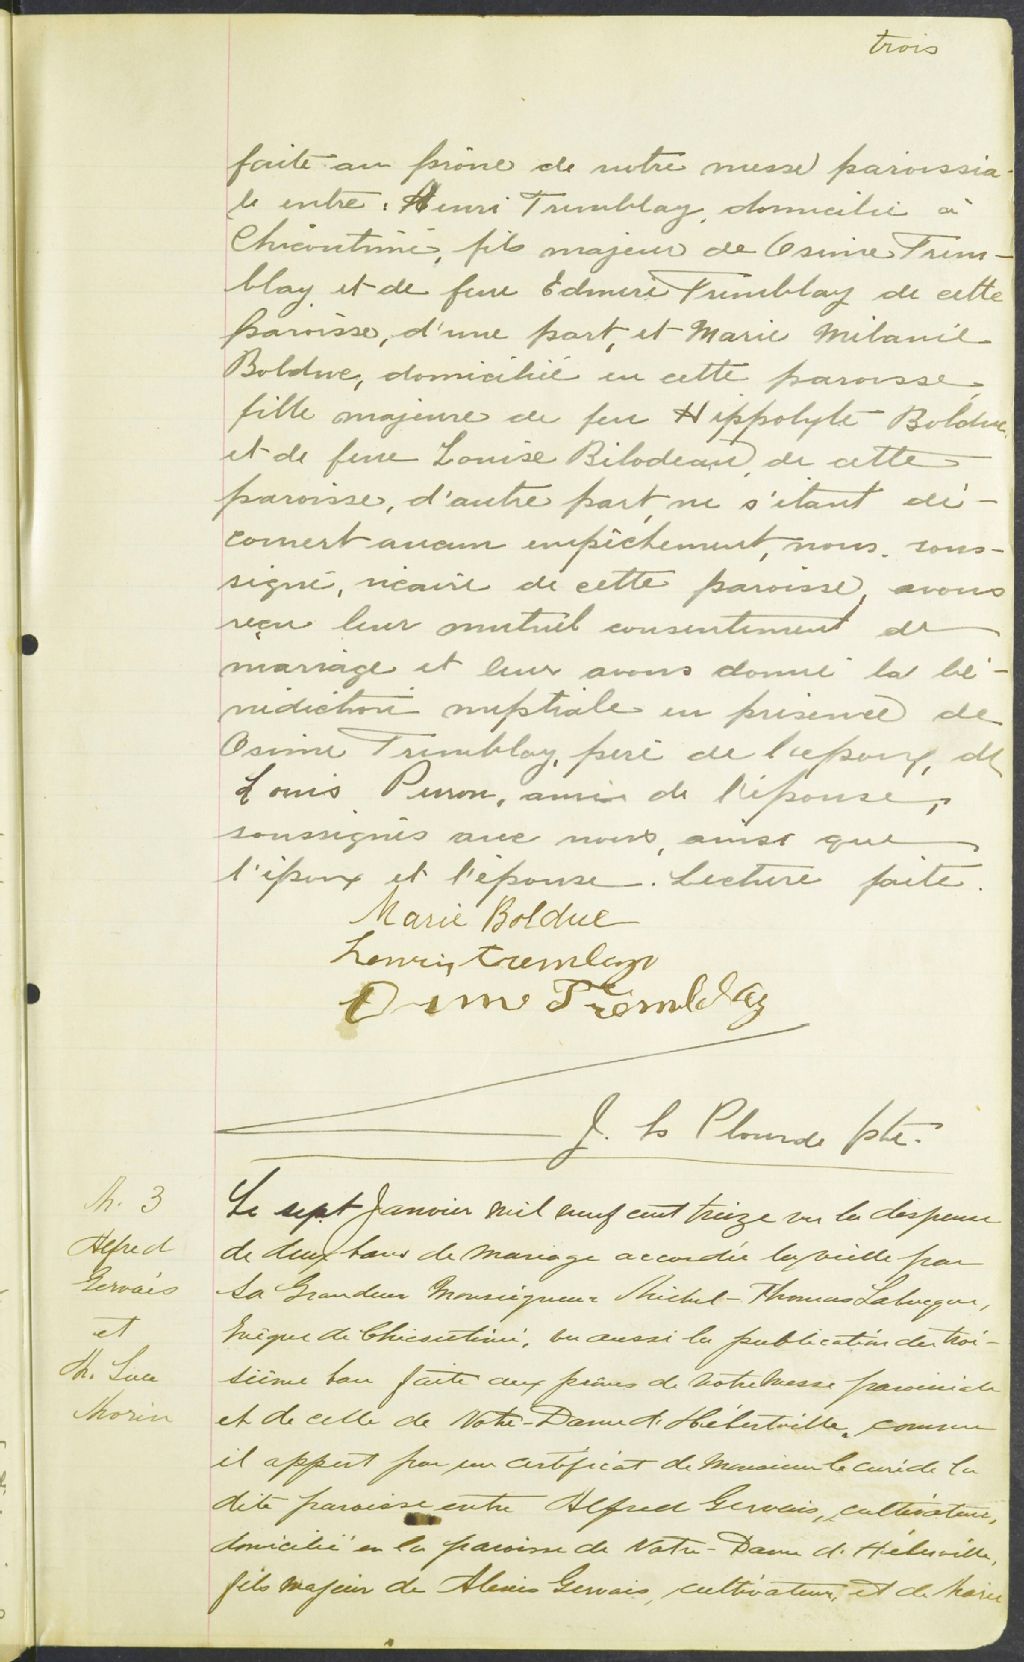 trois
faite au prône de notre messe paroissia-
le entre Henri Tremblay, domicilié à
Chicoutimi, fils majeur de Osime Trem-
blay et de feue Edmire Tremblay de cette
paroisse, d'une part, et Marie Mélanie
Bolduc, domiciliée en cette paroisse,
fille majeure de feu Hippolyte Bolduc
et de feue Louise Bilodeau, de cette
paroisse, d'autre part, ne s'étant dé-
couvert aucun empêchement, nous, sous-
signé, vicaire de cette paroisse, avons
reçu leur mutuel consentement de
mariage et leur avons donné la bé-
nédiction nuptiale en présence de
Osime Tremblay, père de l'époux, de
Louis Perron, ami de l'épouse,
soussignés avec nous, ainsi que
l'époux et l'épouse. Lecture faite.
Marie Bolduc
henri tremblay
Osime Tremblay
J. Plourde ptre.
M. 3
Alfred
Gervais
et
M. Luce
Morin
Le sept Janvier mil neuf cent treize vu la dispense
de deux bans de mariage accordée la veille par
Sa Grandeur Monseigneur Michel-Thomas Labrecque,
Evêque de Chicoutimi, vu aussi la publication du troi-
sième ban faite aux prônes de Notre Messe paroissiale
et de celle de Notre-Dame d'Hébertville, comme
il appert par un certificat de Monsieur le curé de la
dite paroisse entre Alfred Gervais, cultivateur,
domicilié en la paroisse de Notre-Dame d'Hébertville,
fils majeur de Alexis Gervais, cultivateur, et de Marie